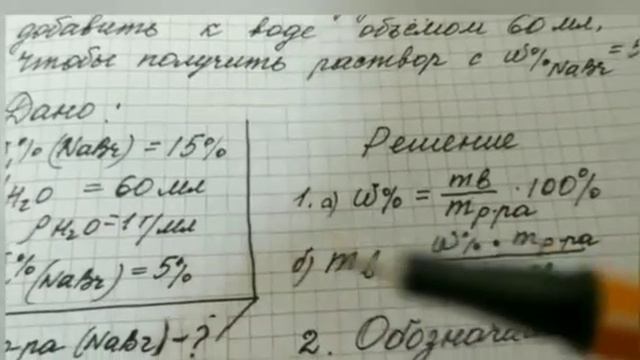 добавить к воде объёмом 60 мл,
чтобы получить раствор с ω%NaBr =
Дано:
% (NaBr) = 15%
H₂O = 60 мл
ρH₂O = 1 г/мл
% (NaBr) = 5%
р-ра (NaBr) - ?
Решение
1. а) ω% = mв / mр-ра · 100%
б) mв ω% · mр-ра
2. Обознача